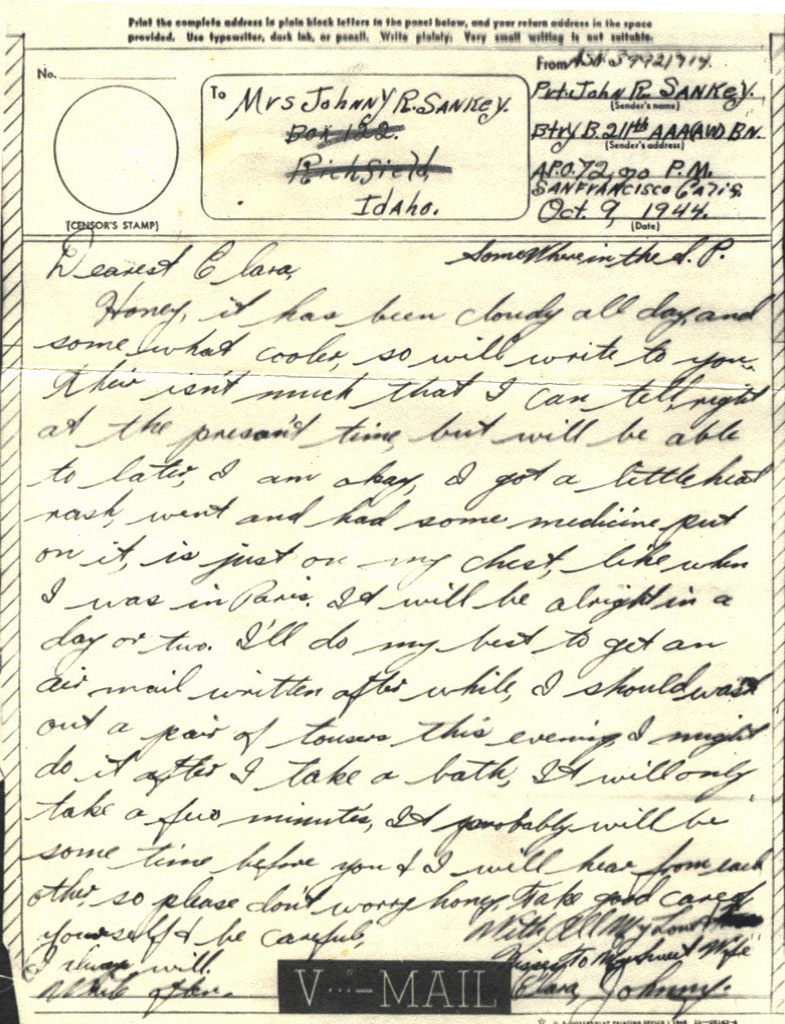 Print the complete address in plain block letters in the panel below, and your return address in the space
provided. Use typewriter, dark ink, or pencil. Write plainly. Very small writing is not suitable.
No.
(CENSOR'S STAMP)
To
Mrs Johnny R. Sankey.
Box 122.
Richfield,
Idaho.
From ASN 39921914.
Pvt. John R. Sankey.
(Sender's name)
Btry B. 211th AAA(AW) BN.
(Sender's address)
A.P.O. 72, c/o P.M.
San Francisco Calif.
Oct. 9, 1944.
(Date)
Somewhere in the S. P.
Dearest Clara,
Honey, it has been cloudy all day, and
some what cooler, so will write to you.
Their isn't much that I can tell, right
at the presant time, but will be able
to later, I am okay, I got a little heat
rash, went and had some medicine put
on it, is just on my chest, like when
I was in Paris. It will be alright in a
day or two. I'll do my best to get an
air mail written after while, I should wash
out a pair of tousers this evening, I might
do it after I take a bath, It will only
take a few minutes, It probably will be
some time before you & I will hear from each
other, so please don't worry honey, Take good care of
yourself & be careful,
I always will.
Write often.
With All My Love
Kisses To My Sweet Wife
Clara, Johnny.
V···-MAIL